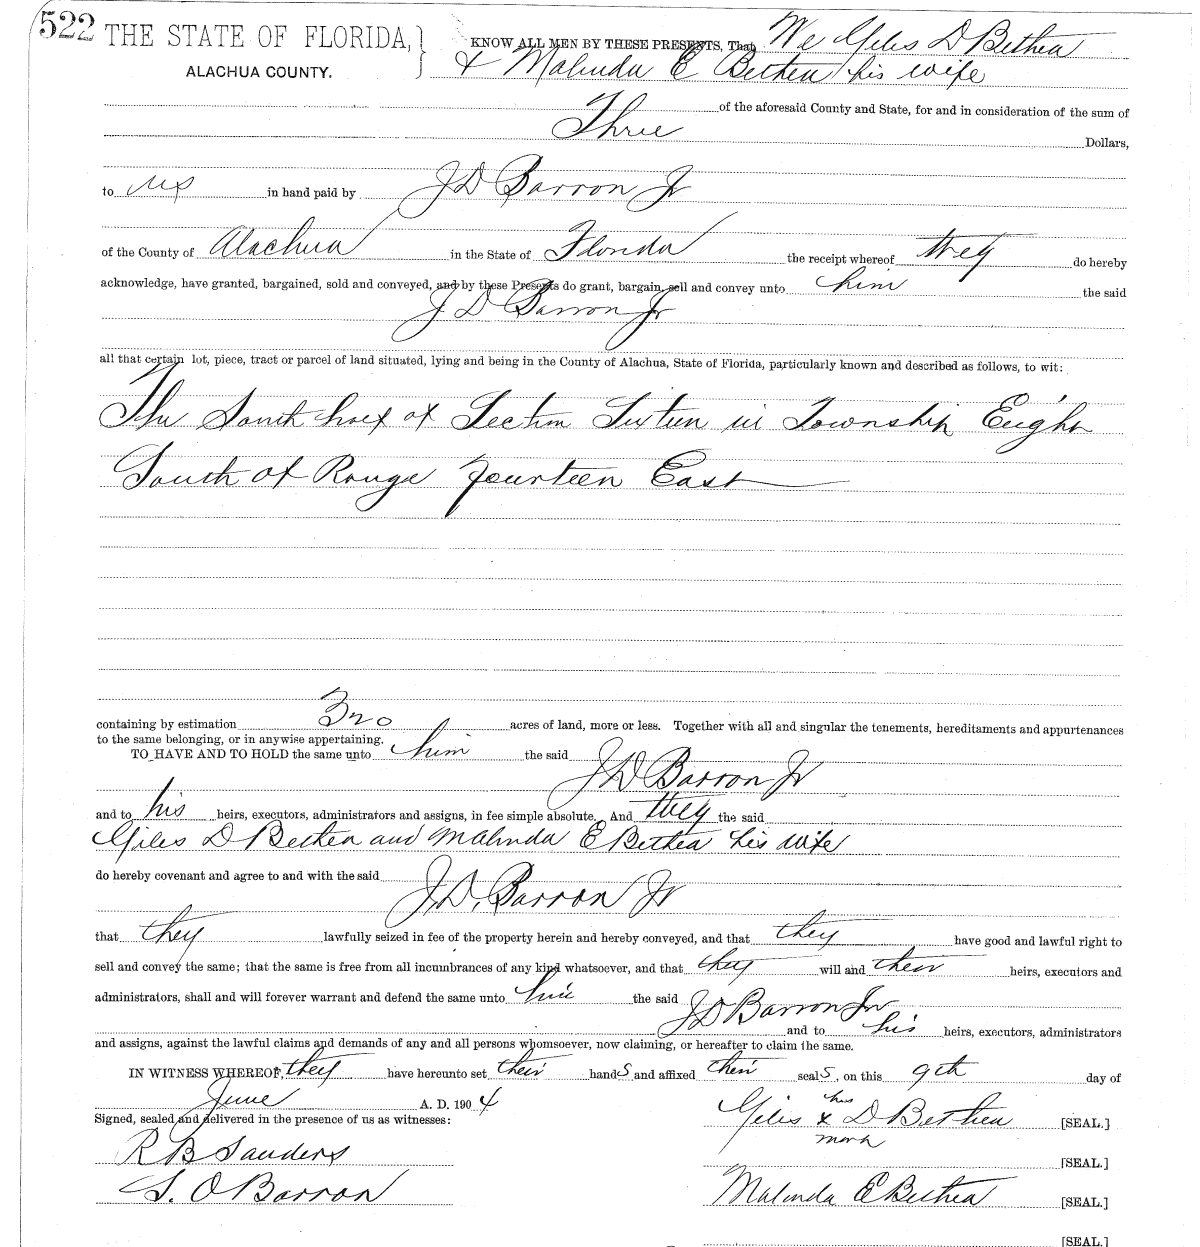 522 THE STATE OF FLORIDA,
ALACHUA COUNTY.
KNOW ALL MEN BY THESE PRESENTS, That We Giles D Bethea
& Malinda E Bethea his wife
of the aforesaid County and State, for and in consideration of the sum of
Three Dollars,
to us in hand paid by J D Barron Jr
of the County of Alachua in the State of Florida the receipt whereof they do hereby
acknowledge, have granted, bargained, sold and conveyed, and by these Presents do grant, bargain, sell and convey unto him the said
J D Barron Jr
all that certain lot, piece, tract or parcel of land situated, lying and being in the County of Alachua, State of Florida, particularly known and described as follows, to wit:
The South half of Section Sixteen in Township Eight
South of Range fourteen East
containing by estimation 320 acres of land, more or less. Together with all and singular the tenements, hereditaments and appurtenances
to the same belonging, or in anywise appertaining.
TO HAVE AND TO HOLD the same unto him the said J D Barron Jr
and to his heirs, executors, administrators and assigns, in fee simple absolute. And they the said
Giles D Bethea and Malinda E Bethea his wife
do hereby covenant and agree to and with the said J. D. Barron Jr
that they lawfully seized in fee of the property herein and hereby conveyed, and that they have good and lawful right to
sell and convey the same; that the same is free from all incumbrances of any kind whatsoever, and that they will and their heirs, executors and
administrators, shall and will forever warrant and defend the same unto him the said J D Barron Jr
and to his heirs, executors, administrators
and assigns, against the lawful claims and demands of any and all persons whomsoever, now claiming, or hereafter to claim the same.
IN WITNESS WHEREOF, they have hereunto set their hands and affixed their seals, on this 9th day of
June A. D. 1904
Signed, sealed and delivered in the presence of us as witnesses:
his
Giles x D Bethea [SEAL.]
mark
R B Sanders [SEAL.]
S. O Barron Malinda E Bethea [SEAL.]
[SEAL.]